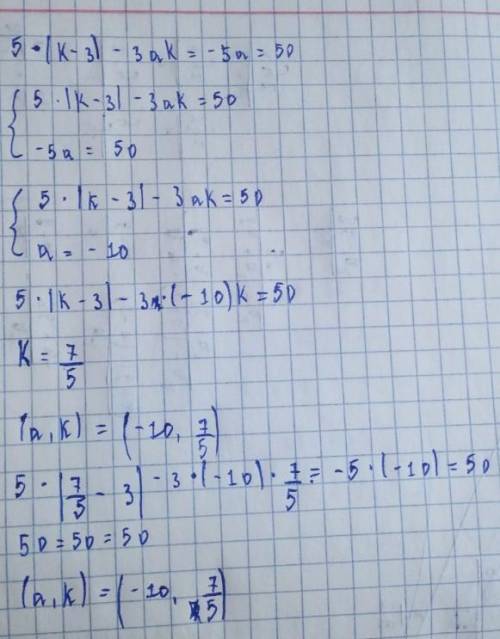 5 · |k - 3| - 3ak = -5a = 50
{ 5 · |k - 3| - 3ak = 50
-5a = 50
{ 5 · |k - 3| - 3ak = 50
a = -10
5 · |k - 3| - 3 · (-10)k = 50
K = 7/5
(a, k) = (-10, 7/5)
5 · |7/5 - 3| - 3 · (-10) · 7/5 = -5 · (-10) = 50
50 = 50 = 50
(a, k) = (-10, 7/5)